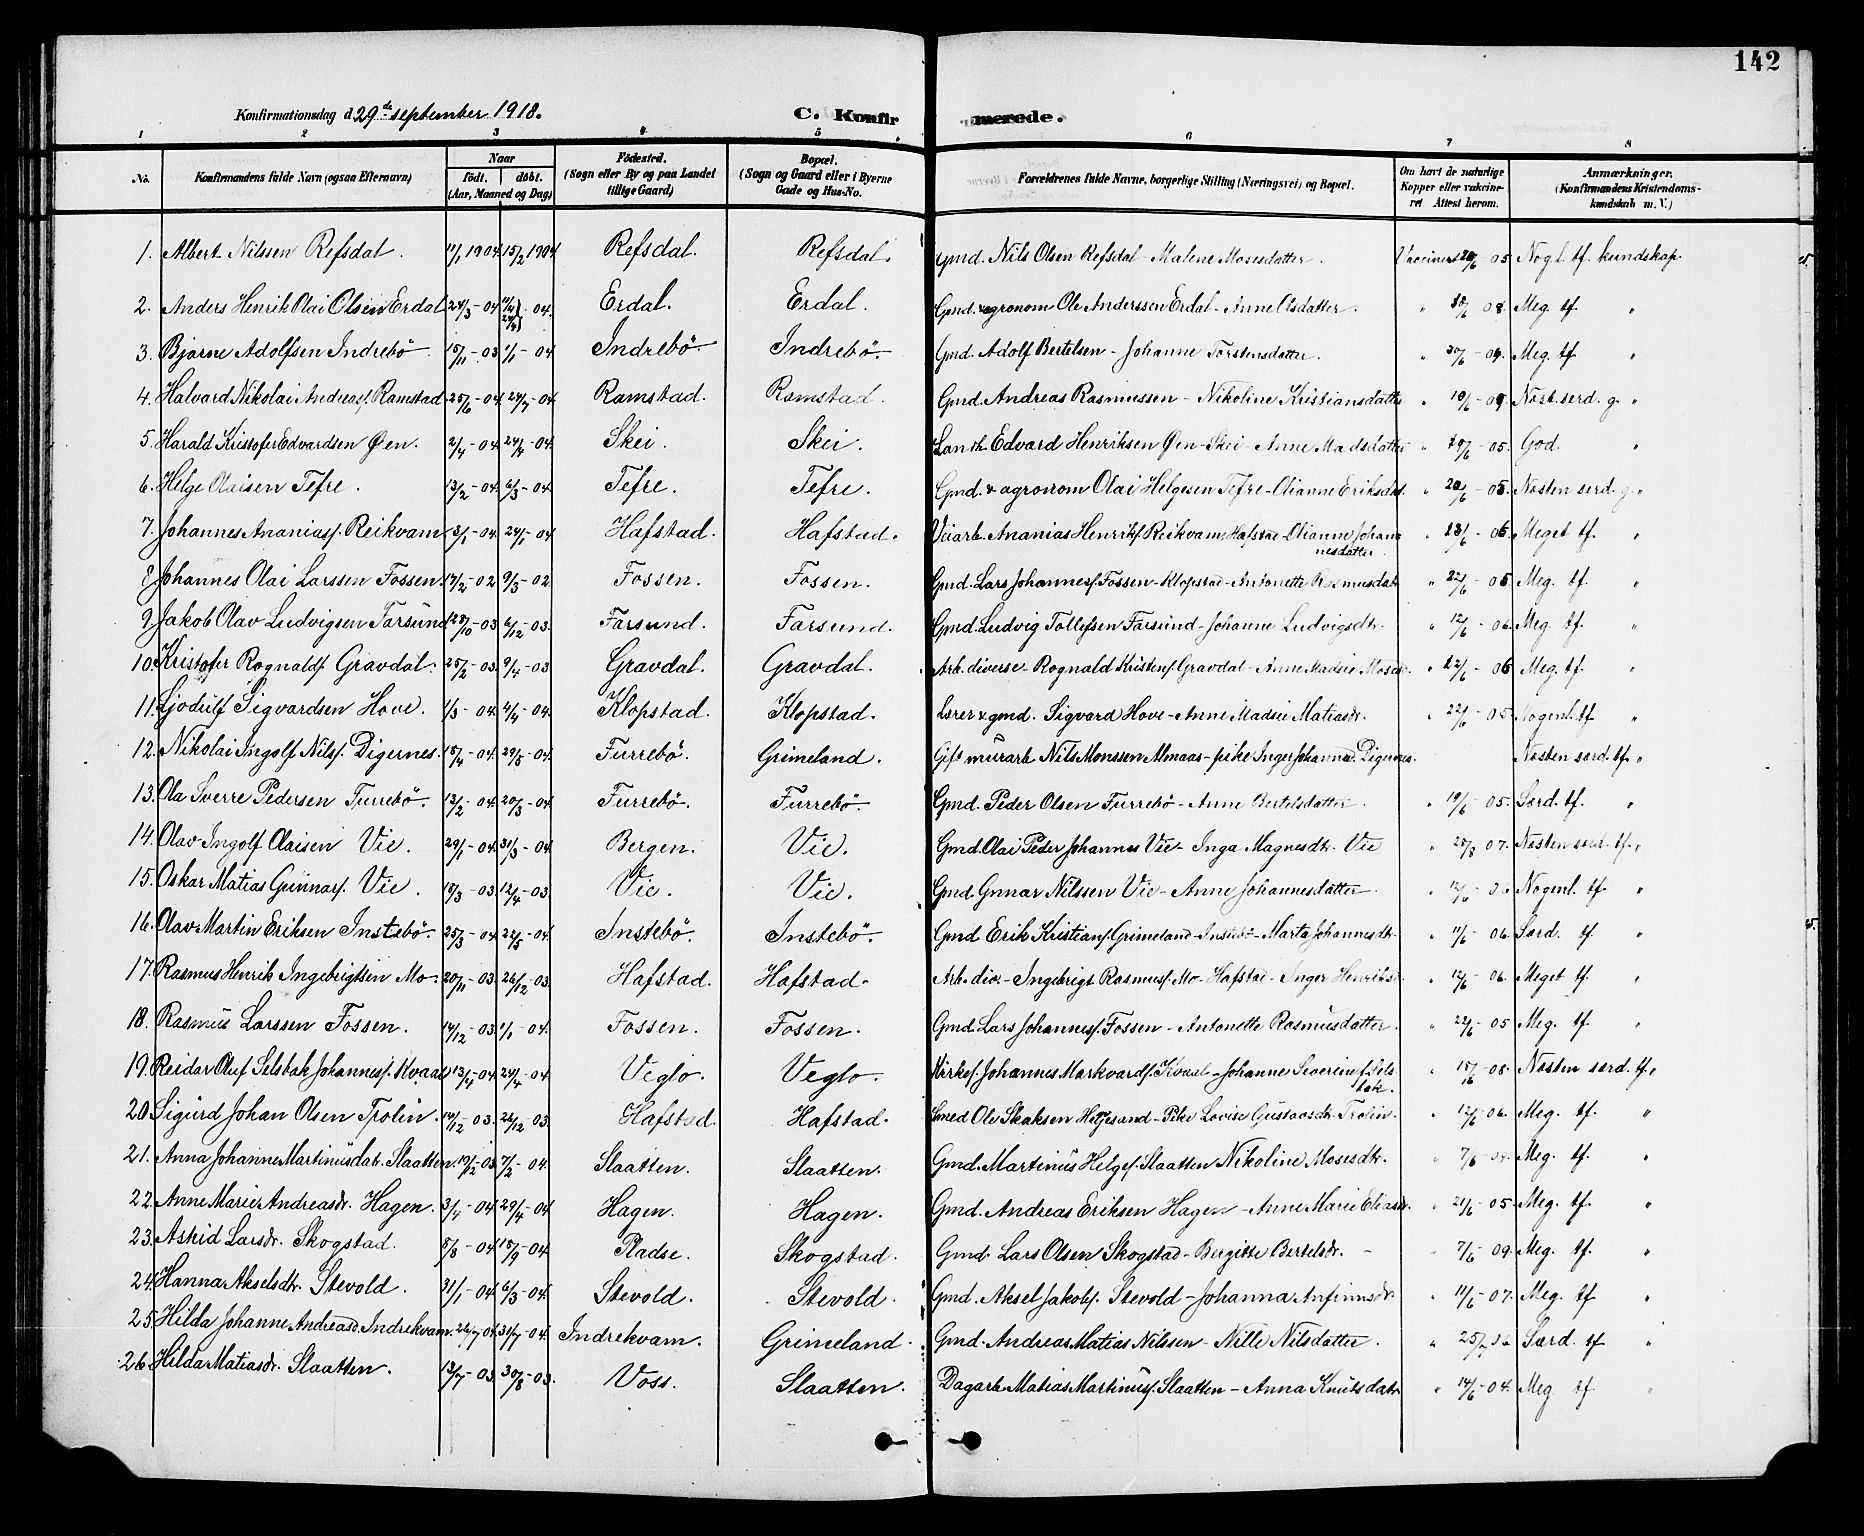 142
Konfirmationsdag d. 29de september 1918. C. Konfirmerede.
1 2 3 4 5 6 7 8
No. Konfirmandens fulde Navn (ogsaa Efternavn) Naar født. døbt. (Aar, Maaned og Dag) Fødested. (Sogn eller By og paa Landet tillige Gaard) Bopæl. (Sogn og Gaard eller i Byerne Gade og Hus-No. Forældrenes fulde Navne, borgerlige Stilling (Næringsvei) og Bopæl. Om havt de naturlige Kopper eller vakcineret Attest herom. Anmærkninger. (Konfirmandens Kristendomskundskab m. V.)
1. Albert Nilssen Refsdal. 11/1 1904. 15/2 1904. Refsdal. Refsdal. Gmd. Nils Olsen Refsdal - Malene Mosesdatter. 05 Nogl. tf. kundskap.
2. Anders Henrik Olai Olsen Erdal 24/3 - 04 - 04. Erdal. Erdal. Gmd. & agronom Ole Anderssen Erdal - Anne Olsdatter. " 08. Meg. tf. "
3. Bjarne Adolfsen Indrebö. 15/11 - 03 1/1 - 04 Indrebö. Indrebö. Gmd. Adolf Bertelsen - Johanne Torstensdatter. " 30/6 - 04. Meg. tf "
4. Halvard Nikolai Andreasf. Ramstad 25/6 - 04. 24/7 - 04. Ramstad. Ramstad. Gmd. Andreas Rasmussen - Nikoline Kristiansdatter " 10/6 - 09. Næst. serd. g. "
5. Harald Kristofer Edvardsen Øen. 2/4 - 04. 24/4 - 04. Skei. Skei. Edvard Henriksen Øen - Skei - Anne Madsdatter " 19/6 - 05. God. "
6. Helge Olaisen Tefre. 13/2 - 04. 6/3 - 04. Tefre. Tefre. Gmd. & agronom Olai Helgesen Tefre - Olianne Eriksdat. " 20/6 - 05. Næsten serd. g. "
7. Johannes Ananiasf. Reikvam 3/1 - 04. 24/1 - 04 Hafstad. Hafstad. Veiarb. Ananias Henrikf. Reikvam, Hafstad - Olianne Johannesdatter. " 23/6 - 05. Meget tf. "
8. Johannes Olai Larssen Fossen. 17/2 - 02. 9/3 - 02 Fossen. Fossen. Gmd. Lars Johannesf. Fossen - Klopstad - Antonette Rasmusdatr " 22/6 - 05 Meg. tf. "
9. Jakob Olav Ludvigsen Farsund 28/10 - 03. 6/12 - 03. Farsund. Farsund. Gmd. Ludvig Tollefsen Farsund - Johanne Ludvigsdtr. " 12/6 - 06. Meg. tf. "
10. Kristofer Rognaldf. Gravdal. 25/2 - 03. 9/4 - 03 Gravdal. Gravdal. Arb. diverse - Rognald Kristenf. Gravdal - Anne Madsie Mosesd. " 22/6 - 05 Meg. tf. "
11. Ljodulf Sigvardsen Hove. 1/3 - 04. 4/4 - 04. Klopstad. Klopstad. Lærer & gmd. Sigvard Hove - Anne Madsie Matiasdr. " 22/6 - 05. Nogenl. tf "
12. Nikolai Ingolf Nilsf. Digernes. 18/4 - 04. 29/5 - 04. Furrebö. Grimeland. Gift murarb. Nils Monssen Almaas - pike Inger Johanne Digernes. Næsten særd. tf. "
13. Ola Sverre Pedersen Furrebö. 13/2 - 04. 20/3 - 04. Furrebö. Furrebö Gmd. Peder Olsen Furrebö - Anne Bertelsdatter. " 19/6 - 05. Særd. tf. "
14. Olav Ingolf Olaisen Vie. 29/1 - 04. 31/3 - 04 Bergen. Vie. Gmd. Olai Peder Johannes Vie - Inga Magnesdtr. Vie " 25/8 07. Næsten særd. tf. "
15. Oskar Matias Gunnarf. Vie. 15/3 - 03. 12/4 - 03. Vie. Vie. Gmd. Gunnar Nilssen Vie - Anne Johannesdatter. " 12/6 - 06 Nogenl. tf. "
16. Olav Martin Eriksen Instebö. 25/3 - 04. 22/5 - 04. Instebö. Instebö. Gmd. Erik Kristianf. Grimeland - Instebö - Marta Johannesdtr. " 11/6 - 06. Særd. tf. "
17. Rasmus Henrik Ingebrigtsen Mo. 20/11 - 03. 26/12 - 03. Hafstad. Hafstad. Arb. div. - Ingebrigt Rasmusf. Mo - Hafstad - Inger Henriksd. " 12/6 - 06. Meget tf. "
18. Rasmus Larssen Fossen. 14/12 - 03. 1/1 - 04. Fossen. Fossen. Gmd. Lars Johannesf. Fossen - Antonette Rasmusdatter. " 22/6 - 05 Meg. tf. "
19. Reidar Oluf Selsbak Johannesf. Kvaal 13/4 - 04. 24/4 - 04. Veglo. Veglo. Kirkes. Johannes Markvardf. Kvaal - Johanne Severine f. Selsbak. " - 08. Næsten særd. tf. "
20. Sigurd Johan Olsen Trolin. 14/12 - 03. 26/12 - 03. Hafstad. Hafstad. Smed Ole Skaksen - Pike Lovise Gustavsdtr. Trolin. " 12/6 - 06. Meg. tf. "
21. Anna Johanne Martinusdatr. Slaatten. 19/12 - 03. 7/2 - 04. Slaatten. Slaatten. Gmd. Martinus Helgef. Slaatten Nikoline Mosesdtr. " 7/6 - 04. Meg. tf. "
22. Anne Marie Andreasdr. Hagen. 3/4 - 04. 29/4 - 04. Hagen. Hagen. Gmd. Andreas Eriksen Hagen - Anne Marie Eliasdr. " 21/6 - 05. Meg. tf. "
23. Astrid Larsdr. Skogstad. 5/8 - 04. 18/9 - 04. Pladse. Skogstad. Gmd. Lars Olsen Skogstad - Bergitte Bertelsdr. - " 7/6 - 09. Meg. tf. "
24. Hanna Akselsdtr. Stevold. 31/1 - 04. 6/3 - 04. Stevold. Stevold. Gmd. Aksel Jakobf. Stevold - Johanna Anfinnsdr. " 11/6 - 07. Meg. tf "
25. Hilda Johanne Andreasd. Indrekvam. 26/7 - 04. 31/7 - 04. Indrekvam. Grimeland. Gmd. Andreas Matias Nilssen - Nille Nilsdatter. " 06 Særd. tf "
26. Hilda Matiasdr. Slaatten. 13/7 - 03. 30/8 - 03. Voss. Slaatten. Dagarb. Matias Martinusf. Slaatten - Anna Knutsdatr " 14/6 - 04. Meg tf "